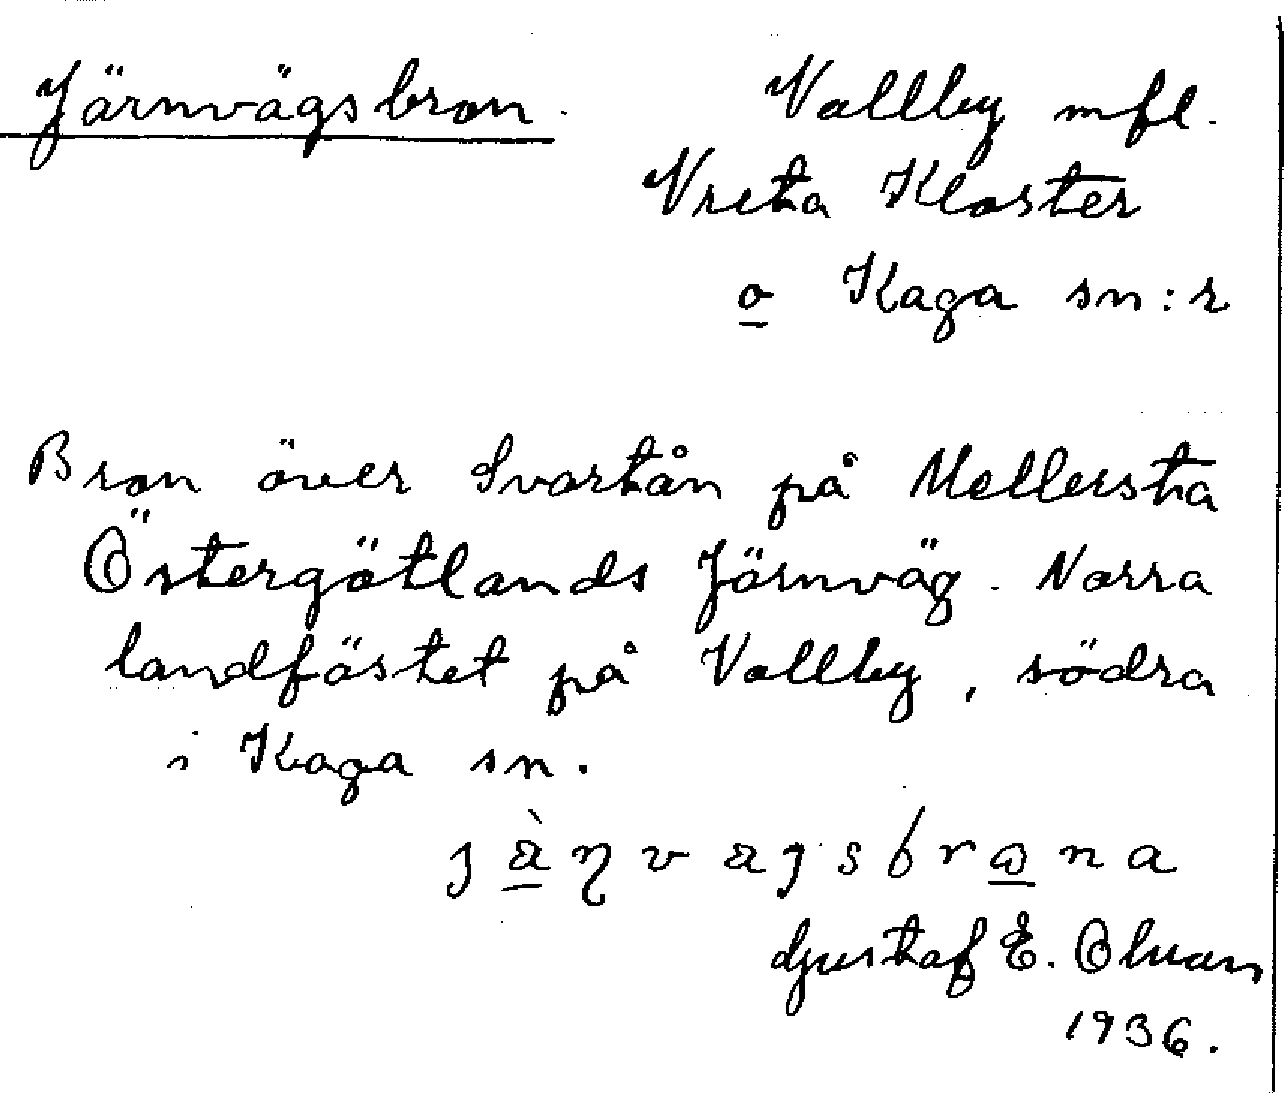 Järnvägsbron.
Vallby mfl.
Vreta Kloster
o Kaga sn:r
Bron över Svartån på Mellersta
Östergötlands Järnväg. Norra
landfästet på Vallby, södra
i Kaga sn.
Gustaf E.
1936.